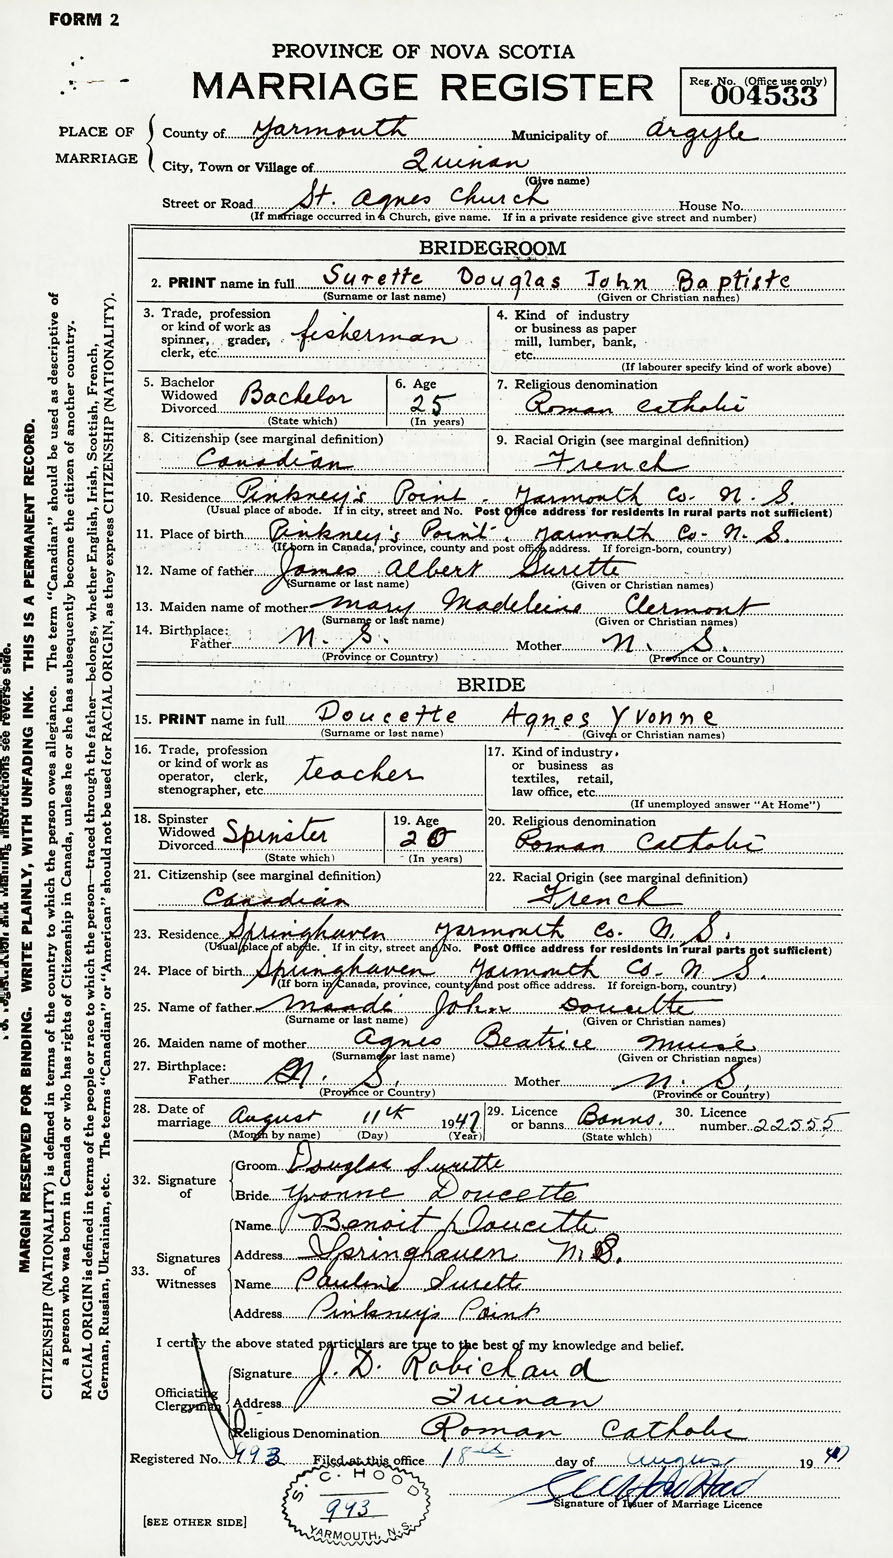 FORM 2
PROVINCE OF NOVA SCOTIA
MARRIAGE REGISTER
Reg. No. (Office use only)
004533
PLACE OF MARRIAGE
County of Yarmouth Municipality of Argyle
City, Town or Village of Quinan
(Give name)
Street or Road St. Agnes Church House No.
(If marriage occurred in a Church, give name. If in a private residence give street and number)
BRIDEGROOM
2. PRINT name in full Surette Douglas John Baptiste
(Surname or last name) (Given or Christian names)
3. Trade, profession or kind of work as spinner, grader, clerk, etc. fisherman
4. Kind of industry or business as paper mill, lumber, bank, etc.
(If labourer specify kind of work above)
5. Bachelor Widowed Divorced Bachelor
(State which)
6. Age 25
(In years)
7. Religious denomination
Roman Catholic
8. Citizenship (see marginal definition)
Canadian
9. Racial Origin (see marginal definition)
French
10. Residence Pinkney's Point. Yarmouth Co. N. S.
(Usual place of abode. If in city, street and No. Post Office address for residents in rural parts not sufficient)
11. Place of birth Pinkney's Point. Yarmouth Co. N. S.
(If born in Canada, province, county and post office address. If foreign-born, country)
12. Name of father James Albert Surette
(Surname or last name) (Given or Christian names)
13. Maiden name of mother Mary Madeleine Clermont
(Surname or last name) (Given or Christian names)
14. Birthplace: Father N. S. Mother N. S.
(Province or Country) (Province or Country)
BRIDE
15. PRINT name in full Doucette Agnes Yvonne
(Surname or last name) (Given or Christian names)
16. Trade, profession or kind of work as operator, clerk, stenographer, etc. teacher
17. Kind of industry, or business as textiles, retail, law office, etc.
(If unemployed answer "At Home")
18. Spinster Widowed Divorced Spinster
(State which)
19. Age 20
(In years)
20. Religious denomination
Roman Catholic
21. Citizenship (see marginal definition)
Canadian
22. Racial Origin (see marginal definition)
French
23. Residence Springhaven Yarmouth Co. N. S.
(Usual place of abode. If in city, street and No. Post Office address for residents in rural parts not sufficient)
24. Place of birth Springhaven Yarmouth Co. N. S.
(If born in Canada, province, county and post office address. If foreign-born, country)
25. Name of father John Doucette
(Surname or last name) (Given or Christian names)
26. Maiden name of mother Agnes Beatrice Muise
(Surname or last name) (Given or Christian names)
27. Birthplace: Father N. S. Mother N. S.
(Province or Country) (Province or Country)
28. Date of marriage August 11th 1947
(Month by name) (Day) (Year)
29. Licence or banns Banns.
(State which)
30. Licence number 22555
32. Signature of
Groom Douglas Surette
Bride Yvonne Doucette
33. Signatures of Witnesses
Name Benoit Doucette
Address Springhaven N.S.
Name Pauline Surette
Address Pinkney's Point
I certify the above stated particulars are true to the best of my knowledge and belief.
Officiating Clergyman
Signature J. D. Robichaud
Address Quinan
Religious Denomination Roman Catholic
Registered No. 993 Filed at this office 18th day of August 1947
Signature of Issuer of Marriage Licence
S. C. HOOD
993
YARMOUTH, N.S.
[SEE OTHER SIDE]
MARGIN RESERVED FOR BINDING. WRITE PLAINLY, WITH UNFADING INK. THIS IS A PERMANENT RECORD.
CITIZENSHIP (NATIONALITY) is defined in terms of the country to which the person owes allegiance. The term "Canadian" should be used as descriptive of
a person who was born in Canada or who has rights of Citizenship in Canada, unless he or she has subsequently become the citizen of another country.
RACIAL ORIGIN is defined in terms of the people or race to which the person—traced through the father—belongs, whether English, Irish, Scottish, French,
German, Russian, Ukrainian, etc. The terms "Canadian" or "American" should not be used for RACIAL ORIGIN, as they express CITIZENSHIP (NATIONALITY).
instructions see reverse side.